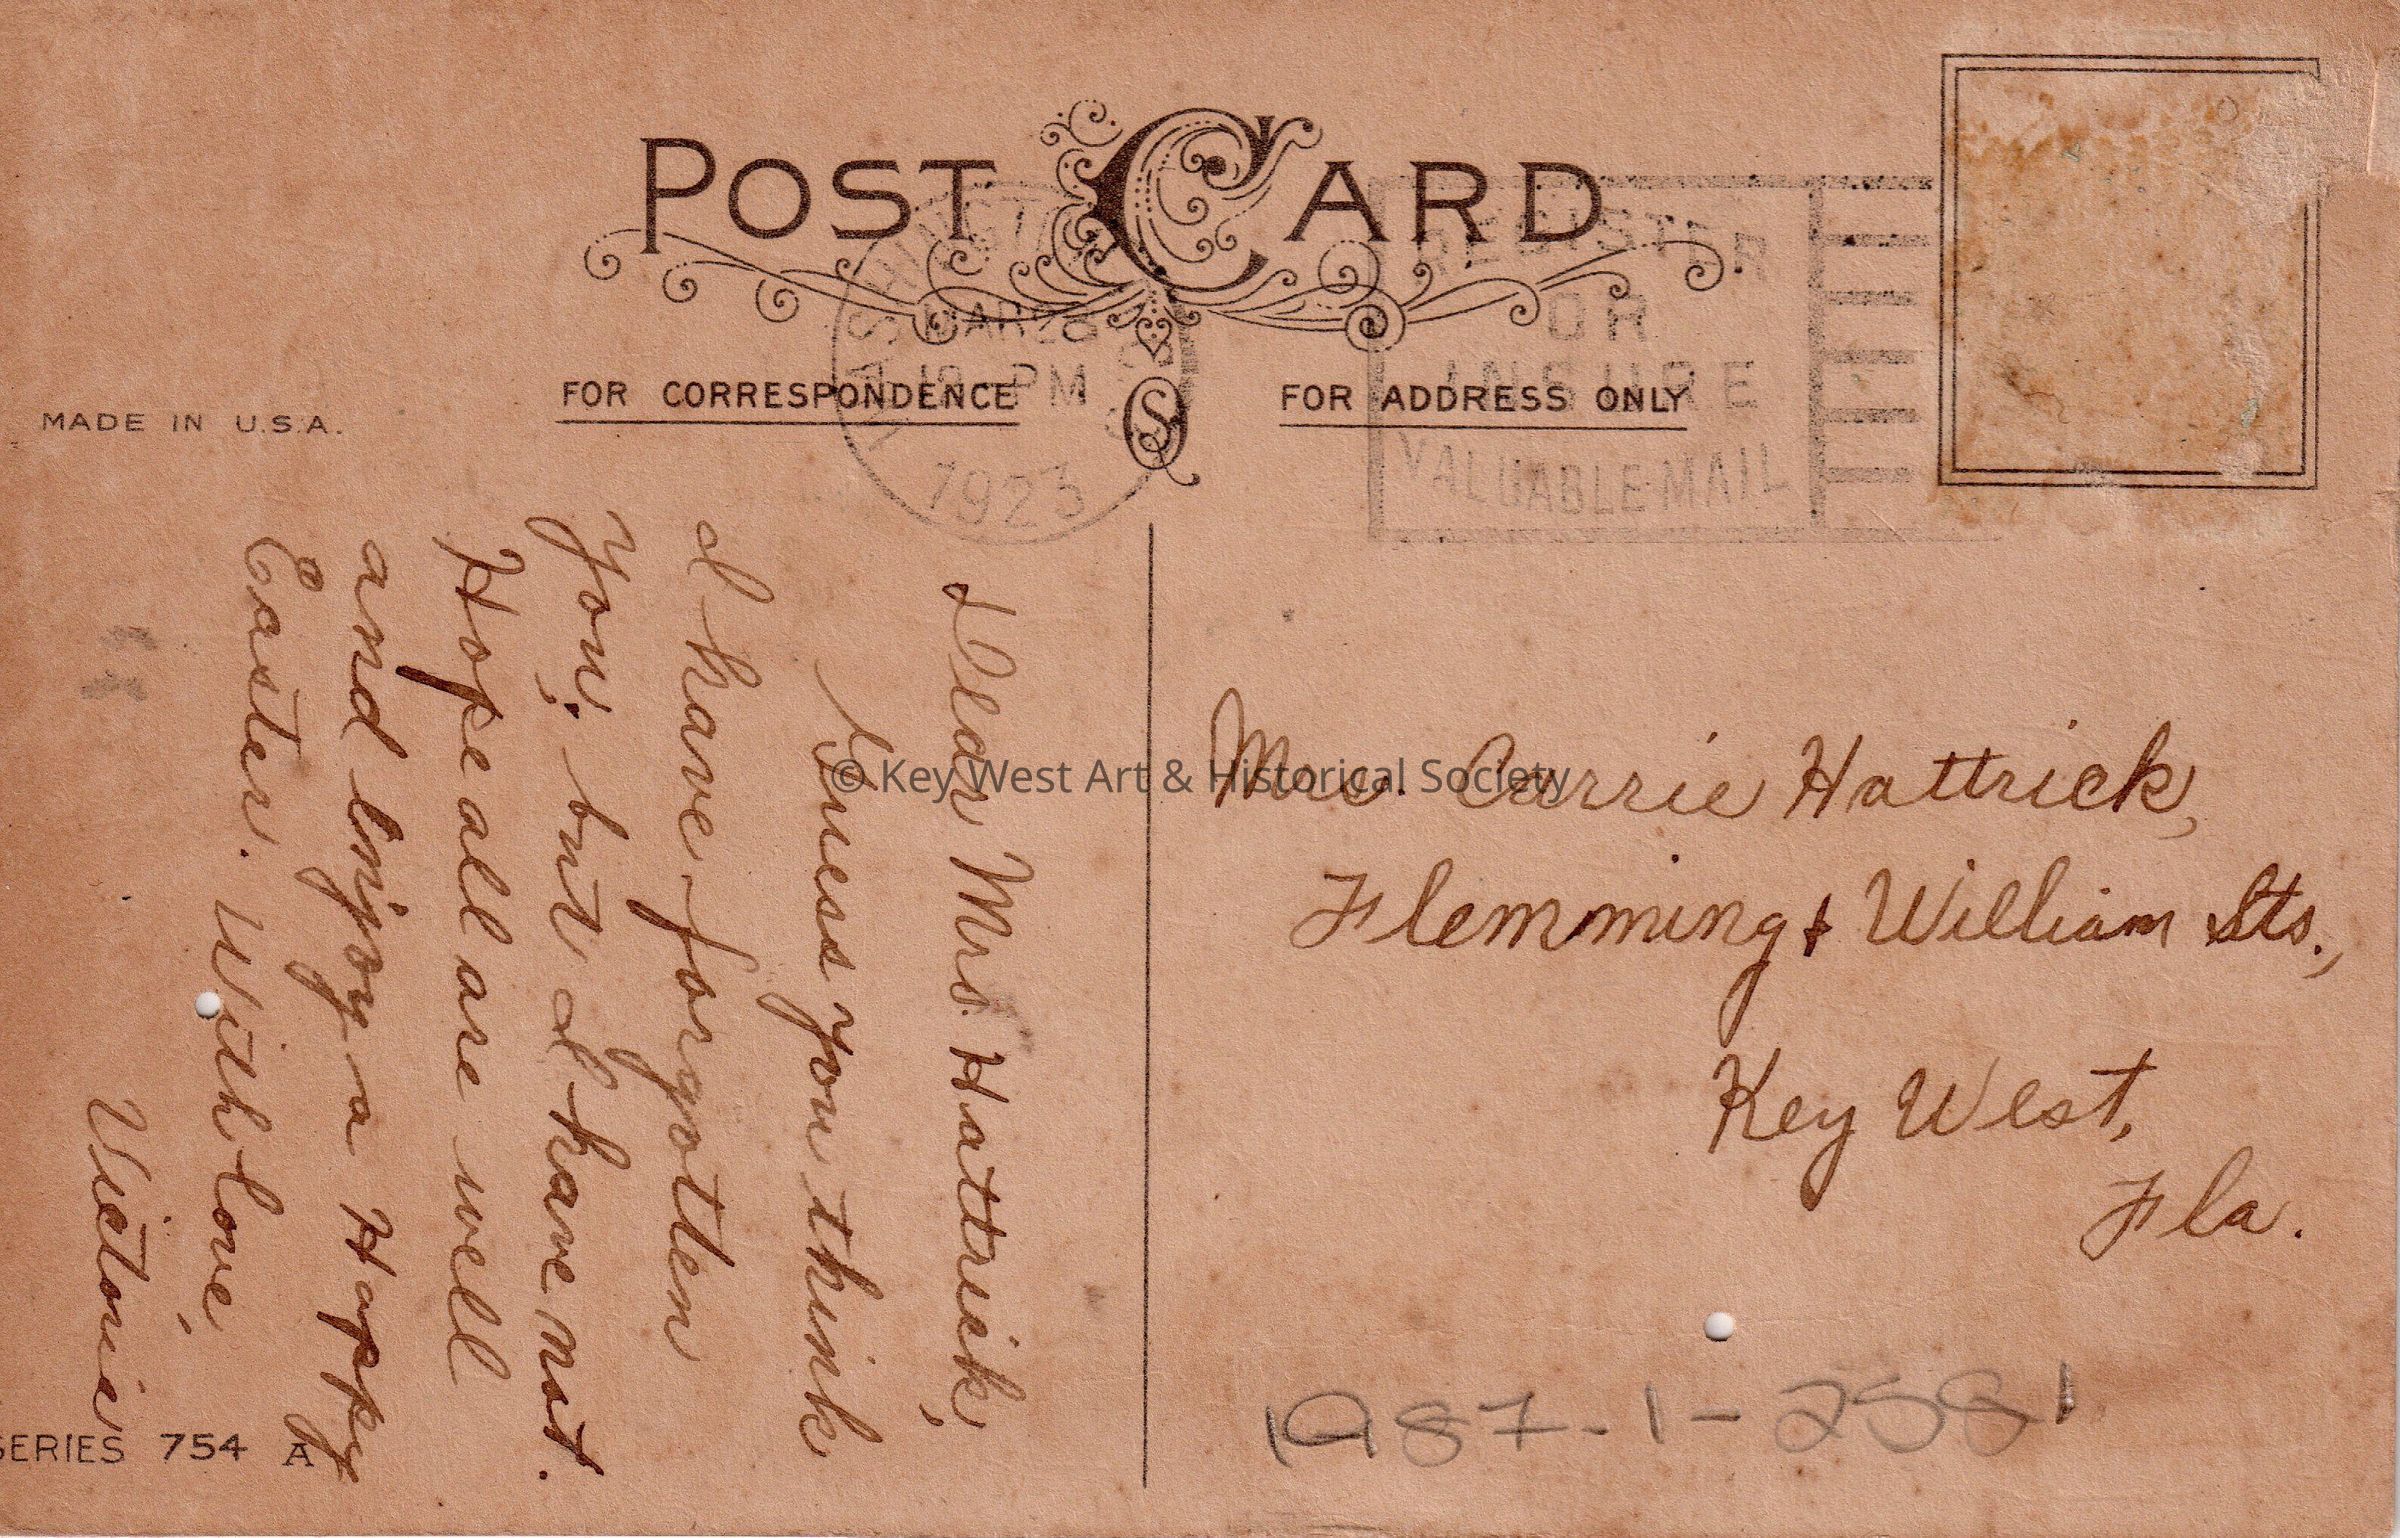 POST CARD
FOR CORRESPONDENCE
FOR ADDRESS ONLY
MADE IN U.S.A.
WASHINGTON
MAR 28
PM
1923
REGISTER
OR
INSURE
VALUABLE MAIL
Dear Mrs. Hattrick,
Guess you think
I have forgotten
you; but I have not.
Hope all are well
and enjoy a Happy
Easter. With love,
Victoria
Mrs. Carrie Hattrick,
Flemming & William Sts.,
Key West,
Fla.
© Key West Art & Historical Society
SERIES 754 A
1987-1-2581